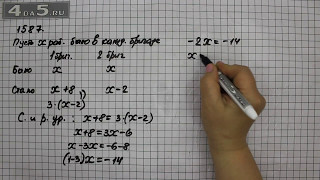 4DA5.RU
1587.
Пусть x раб. было в кажд. бригаде
1 бриг. 2 бриг.
Было x x
Стало x+8 x-2
3·(x-2)
С. и р. ур.: x+8=3·(x-2)
x+8=3x-6
x-3x=-6-8
(1-3)x=-14
-2x=-14
x